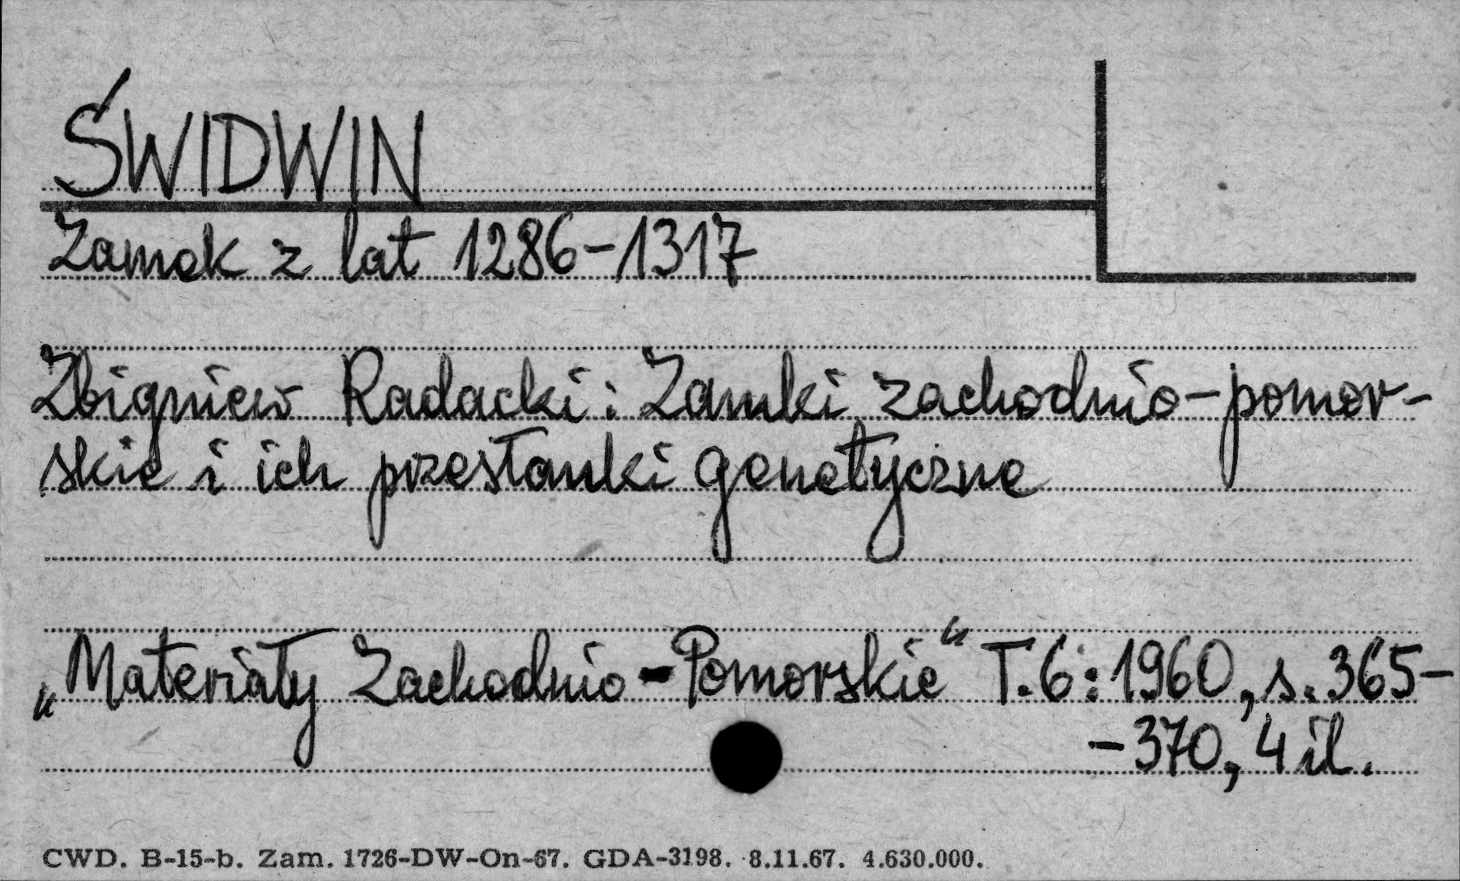 ŚWIDWIN
Zamek z lat 1286-1317
Zbigniew Radacki: Zamki zachodnio-pomor-
skie i ich przesłanki genetyczne
„Materiały Zachodnio-Pomorskie" T.6:1960, s.365-
-370, 4 il.
CWD. B-15-b. Zam. 1726-DW-On-67. GDA-3198. 8.11.67. 4.630.000.